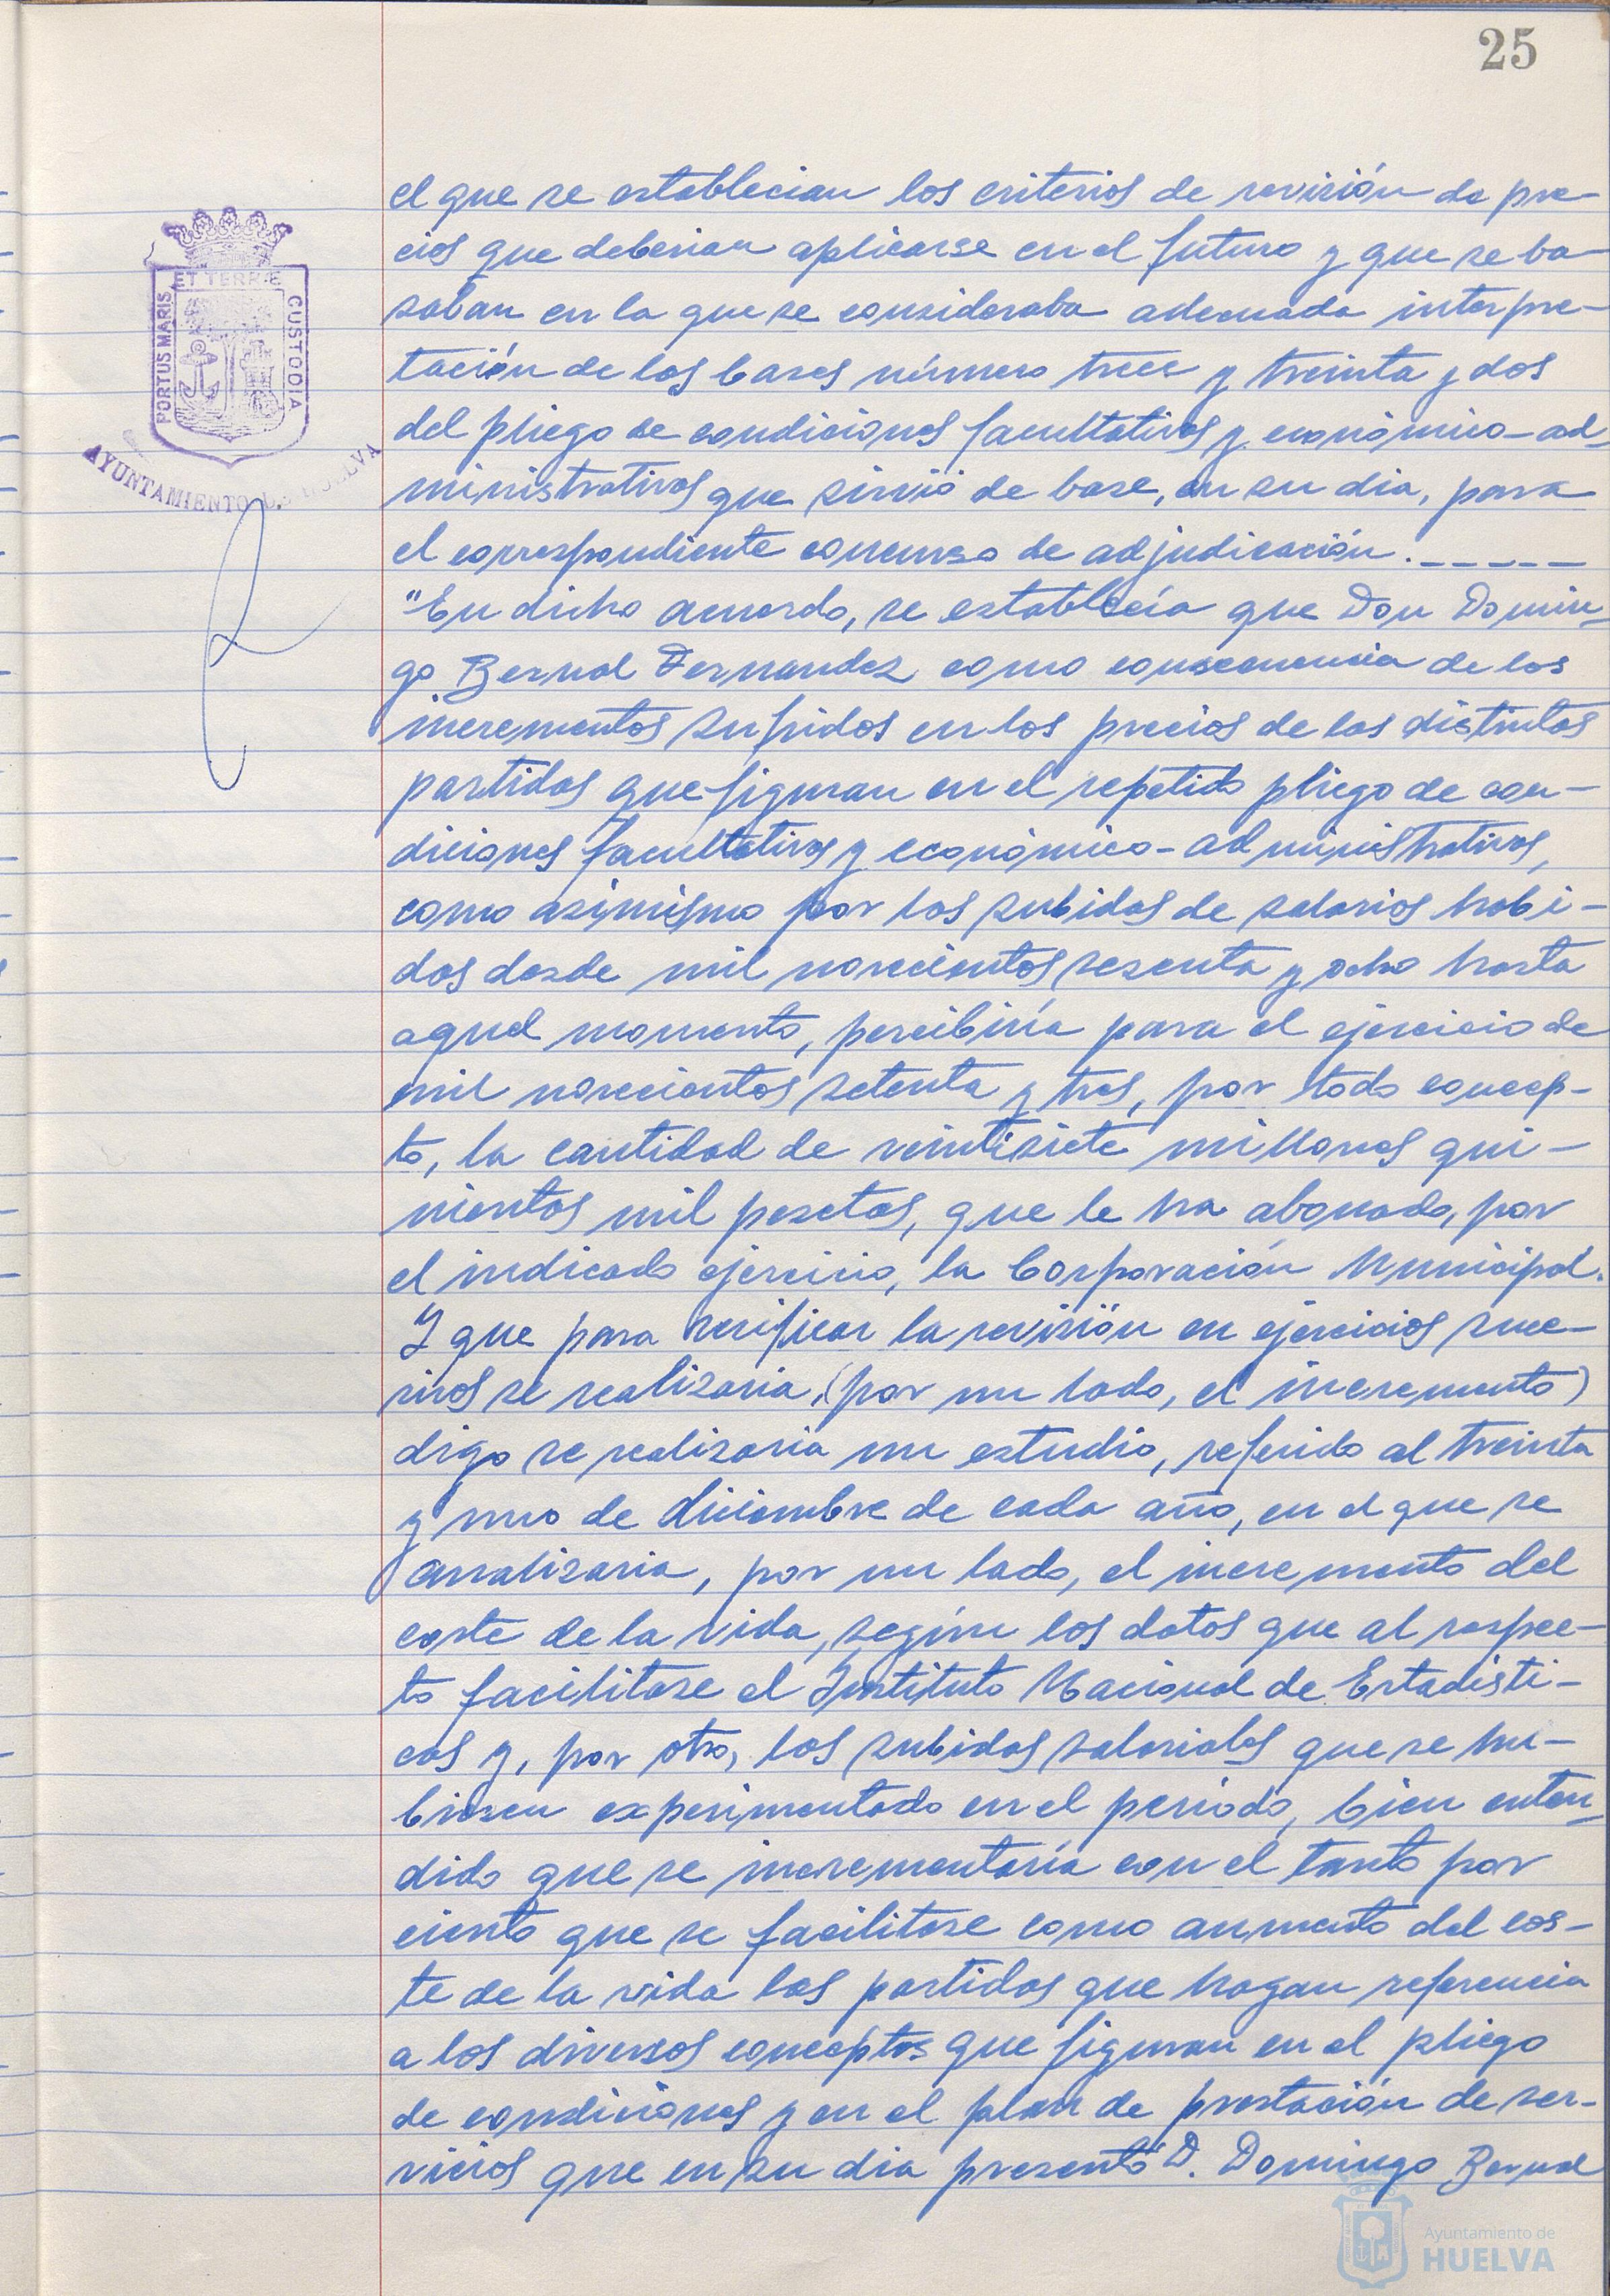 25
el que se establecian los criterios de revisión de pre-
cios que deberian aplicarse en el futuro y que se ba-
saban en la que se consideraba adecuada interpre-
tación de las bases número trece y treinta y dos
del pliego de condiciones facultativas y económico-ad-
ministrativas que sirvió de base, en su dia, para
el correspondiente concurso de adjudicación.-----
"En dicho acuerdo, se establecía que Don Domin-
go Bernal Fernandez como consecuencia de los
incrementos sufridos en los precios de las distintas
partidas que figuran en el repetido pliego de con-
diciones facultativas y económico-administrativas,
como asimismo por las subidas de salarios habi-
das desde mil novecientos sesenta y ocho hasta
aquel momento, percibiría para el ejercicio de
mil novecientos setenta y tres, por todo concep-
to, la cantidad de veintisiete millones qui-
nientas mil pesetas, que le ha abonado, por
el indicado ejercicio, la Corporación Municipal.
Y que para verificar la revisión en ejercicios suce-
sivos se realizaria, (por un lado, el incremento)
digo se realizaria un estudio, referido al treinta
y uno de diciembre de cada año, en el que se
analizaria, por un lado, el incremento del
coste de la vida, según los datos que al respec-
to facilitase el Instituto Nacional de Estadisti-
cas y, por otro, las subidas salariales que se hu-
biesen experimentado en el periodo, bien enten-
dido que se incrementaría con el tanto por
ciento que se facilitase como aumento del cos-
te de la vida las partidas que hagan referencia
a los diversos conceptos que figuran en el pliego
de condiciones y en el plan de prestación de ser-
vicios que en su dia presentó D. Domingo Bernal
PORTUS MARIS ET TERRÆ CUSTODIA
AYUNTAMIENTO DE HUELVA
Ayuntamiento de
HUELVA